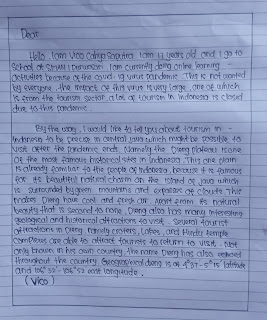 Dear
Hello, I am Vico Cahya Saputra I am 17 years old and I go to
School at SMKN 1 I am currently doing online learning
activities because of the covid-19 virus pandemic. This is not wanted
by everyone. the impact of this virus is very large, one of which
is from the tourism sector. a lot of tourism in Indonesia is closed
due to this pandemic.
By the way, I would like to tell you about tourism in
Indonesia to be precise in central java which might be possible to
visit after the pandemic ends. Namely the Dieng plateau is one
of the most famous historical sites in Indonesia. This one plain
is already familiar to the people of Indonesia, because it is famous
for its beautiful natural charm on the island of java which
is surrounded by green mountains and expanse of clouds. This
makes Dieng have cool and fresh air. Apart from its natural
beauty that is second to none, Dieng also has many interesting
geological and historical attractions to visit. Several tourist
attractions in Dieng, namely craters, lakes, and Hindu temple
complexes are able to attract tourists to return to visit. Not
only known in his own country, the name Dieng has also echoed
throughout the country. Geographical dieng is at latitude
and east longitude.
(Vico)